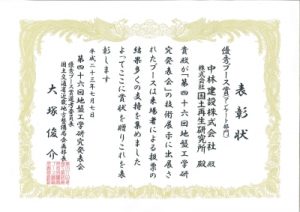 表彰状
優秀ブース賞(アンケート部門)
中林建設株式会社 殿
株式会社国土再生研究所 殿
貴殿が「第四十六回地盤工学研
究発表会」の技術展示に出展さ
れたブースは来場者による投票の
結果多くの支持を集めました
よってここに賞状を贈りこれを表
彰します
平成二十三年七月七日
第四十六回地盤工学研究発表会
大塚俊介